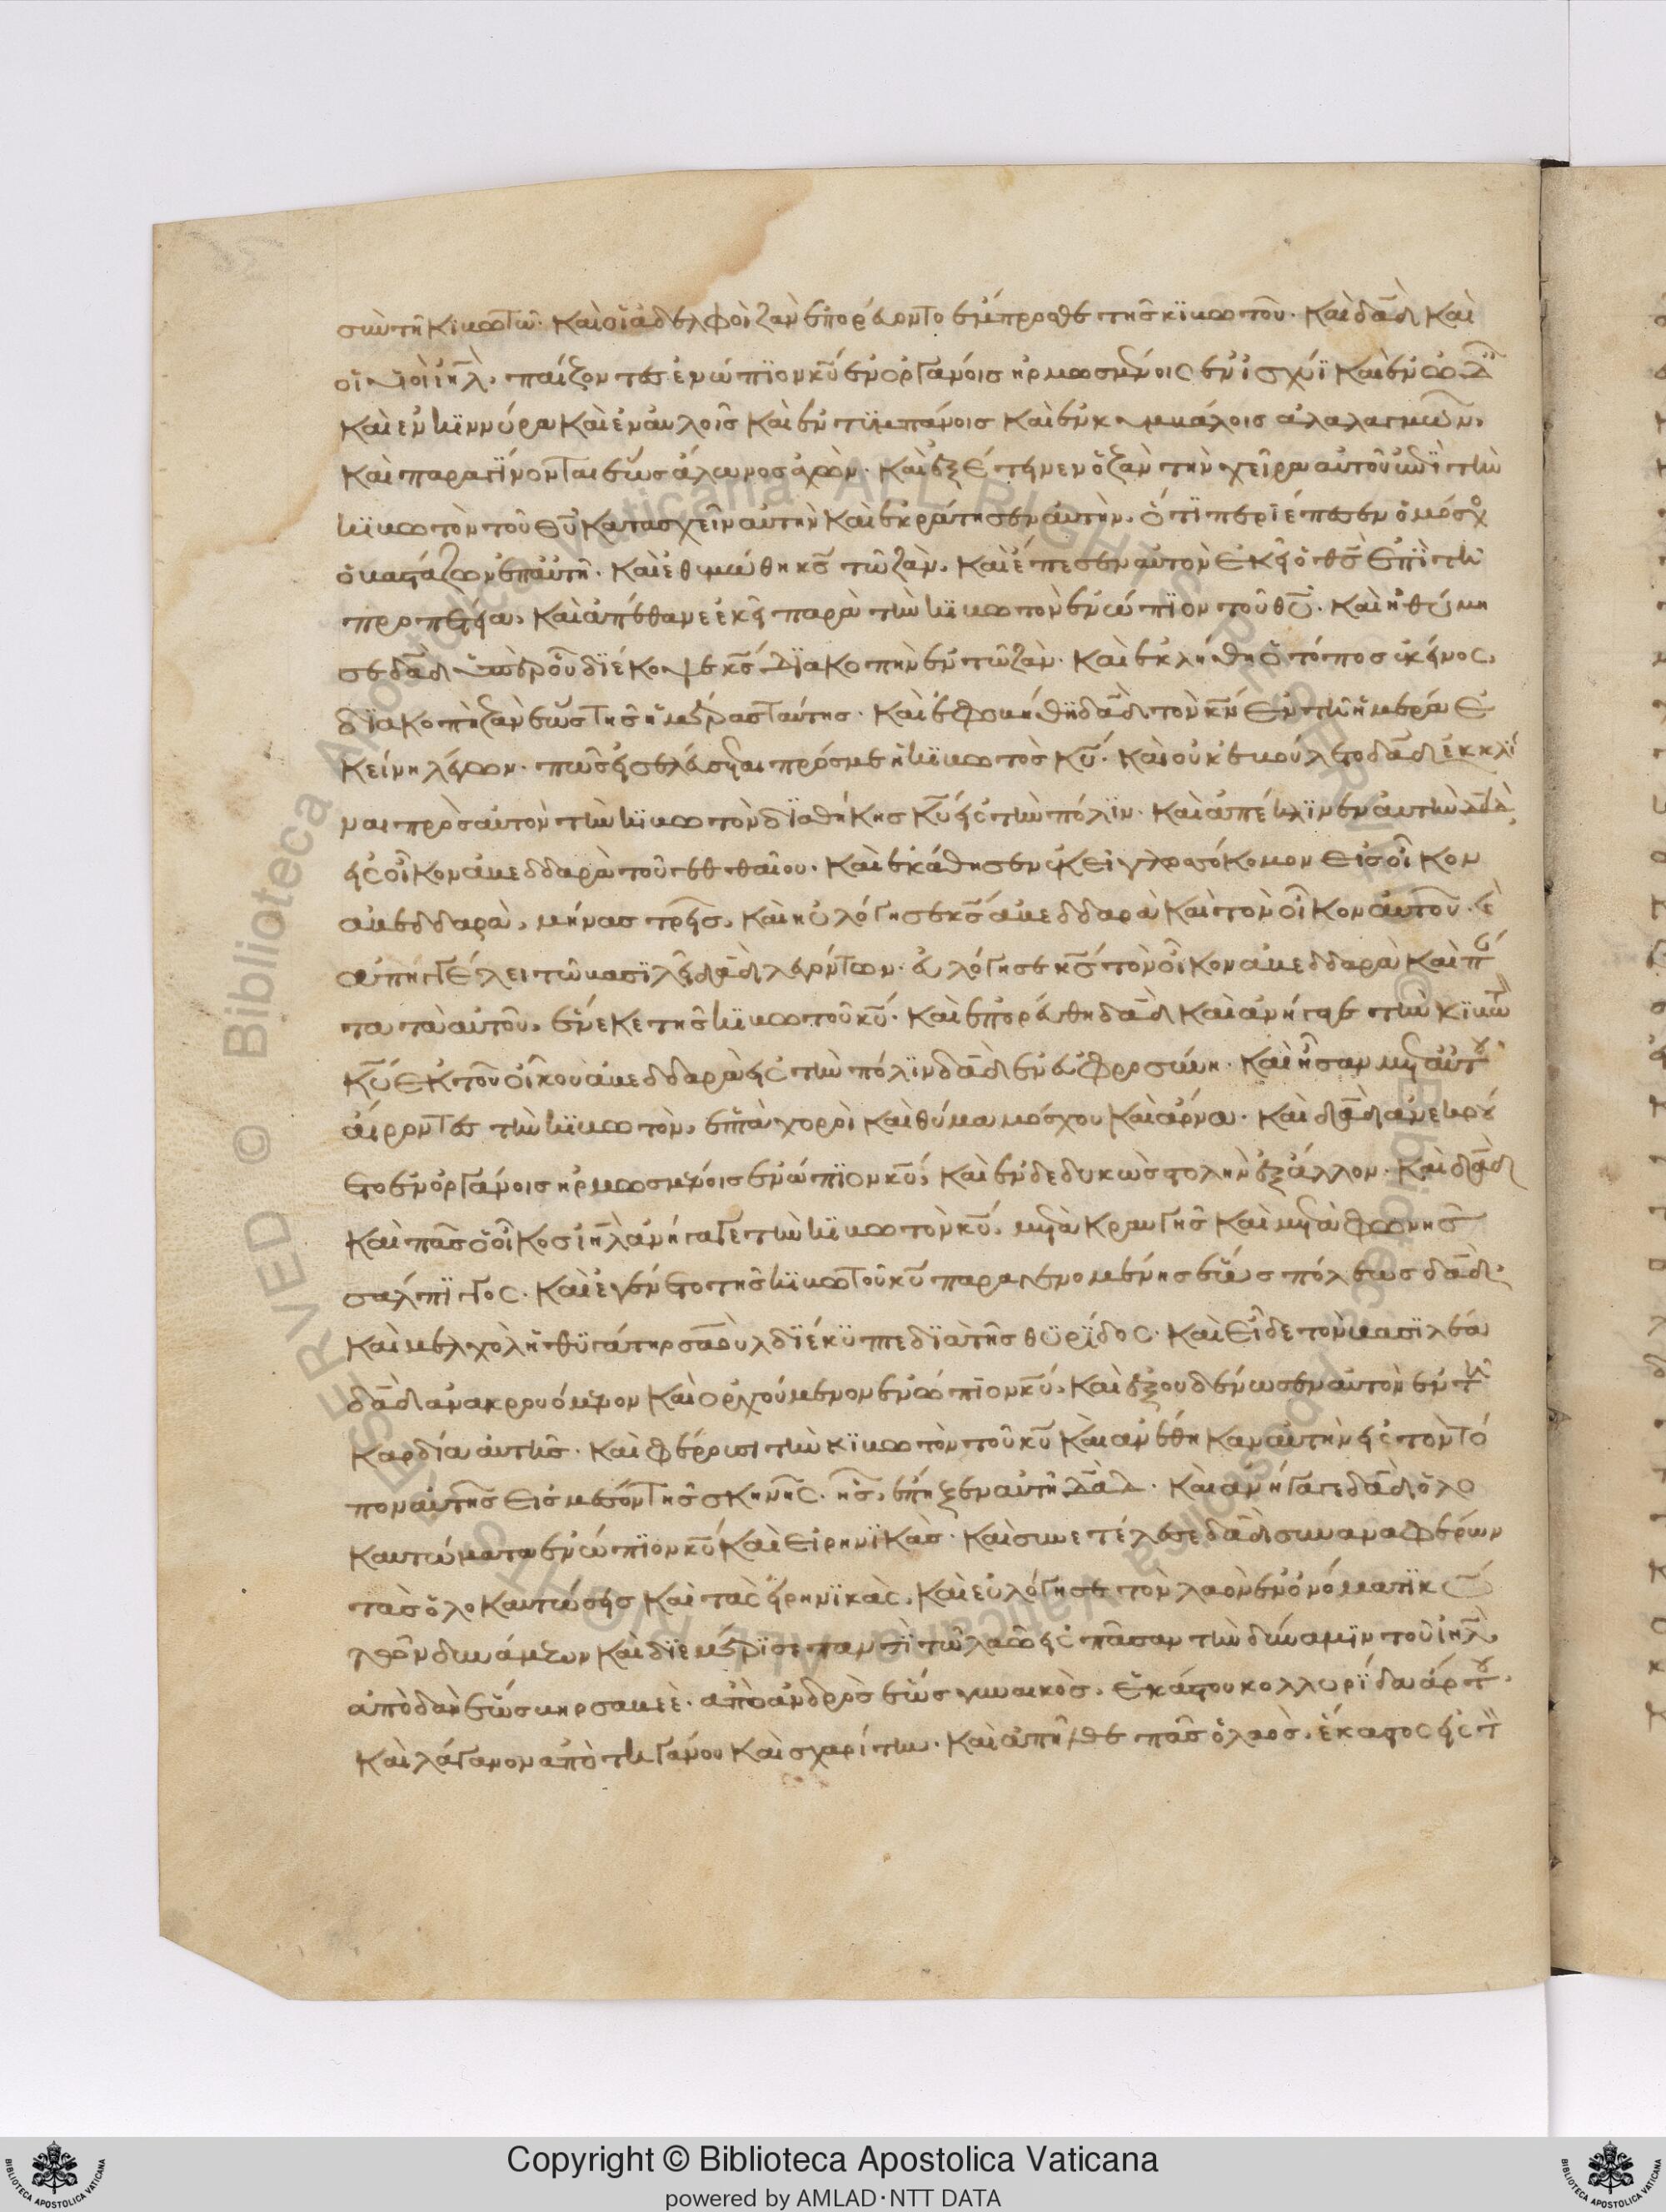 σὺν τῆ κιβωτῶ· καὶ οἱ ἀδελφοὶ ζὰν ἐπορεύοντο ἔμπροσθε τῆς κϊβωτοῦ· καὶ δᾱδ καὶ
οἱ υἱοὶ ιη̄λ, παίζοντες ἐνώπϊον κ̄υ ἐν ὀργάνοις ἡρμοσμένοις ἐν ἰσχύϊ καὶ ἐν ὠδ
καὶ ἐν κϊννύρα καὶ ἐν αὐλοῖς καὶ ἐν τϋμπάνοις καὶ ἐν κυμβάλοις ἀλαλαγμῶν,
καὶ παραγίνονται ἕως ἅλωνος ἀχὼν· καὶ ἐξέτεινεν ὀζὰν τὴν χεῖρα αὐτοῦ ἐπϊ τὴν
κϊβωτὸν τοῦ θ̄υ κατασχεῖν αὐτὴν καὶ ἐκράτησεν αὐτὴν, ὅτι περϊέπεσεν ὁ μόσχο
ὁ βαστάζων ἐπαὐτῆ· καὶ ἐθυμώθη κ̄ς τῶ ζὰν, καὶ ἔπεσεν αὐτὸν ἐκεῖ ὁ θ̄ς ἐπὶ τῆ
προπετεία, καὶ ἀπέθανε ἐκεῖ παρὰ τὴν κϊβωτὸν ἐνώπϊον τοῦ θ̄υ· καὶ ἠθύμη
σε δᾱδ ὑπὲρ οὗ δϊέκοψε κ̄ς δϊακοπὴν ἐν τῶ ζὰν· καὶ ἐκλήθη ὁ τόπος ἐκεῖνος,
δϊακοπὴ ζὰν ἕως τῆς ἡμέρας ταύτης· καὶ ἐφοβήθη δᾱδ τὸν κ̄ν ἐν τῆ ἡμέρα ἐ
κείνη λέγων· πῶς εἰσελεύσεται πρός με ἡ κϊβωτὸς κ̄υ· καὶ οὐκ ἐβούλετο δᾱδ ἐκκλῖ
ναι πρὸς αὐτὸν τὴν κϊβωτὸν δϊαθήκης κ̄υ εἰς τὴν πόλϊν· καὶ ἀπέκλϊνεν αὐτὴν δᾱδ,
εἰς οἶκον ἀβεδδαρὰ τοῦ γεθθαίου· καὶ ἐκάθησεν ἐκεῖ γλωσσόκομον εἰς οἶκον
ἀβεδδαρὰ, μῆνας τρεῖς, καὶ ηὐλόγησε κ̄ς ἀβεδδαρὰ καὶ τὸν οἶκον αὐτοῦ· κὲ
ἀπηγγέλει τῶ βασϊλεῖ δᾱδ λεγόντων· εὐλόγησε κ̄ς τὸν οἶκον ἀβεδδαρὰ καὶ πάν
τα τὰ αὐτοῦ, ἕνεκε τῆς κϊβωτοῦ κ̄υ· καὶ ἐπορεύθη δᾱδ καὶ ἀνήγαγε τὴν κϊβωτ
κ̄υ ἐκ τοῦ οἴκου ἀβεδδαρὰ εἰς τὴν πόλϊν δᾱδ ἐν εὐφροσύνη· καὶ ἦσαν μεταὐτου
αἴροντες τὴν κϊβωτὸν, ἑπτὰ χοροὶ καὶ θύμα μόσχου καὶ ἄρνα· καὶ δᾱδ ἀνεκρού
ετο ἐν ὀργάνοις ἡρμοσμένοις ἐνώπϊον κ̄υ, καὶ ἐνδεδυκὼς στολὴν ἔξαλλον· καὶ δᾱδ
καὶ πᾶς ὁ οἶκος ιη̄λ ἀνήγαγε τὴν κϊβωτὸν κ̄υ, μετὰ κραυγῆς καὶ μετὰ φωνῆς
σάλπϊγγος· καὶ ἐγένετο τῆς κϊβωτοῦ κ̄υ παραγενομένης ἕως πόλεως δᾱδ·
καὶ μελχὸλ ἡ θϋγάτηρ σαοὺλ δϊέκϋπτε δϊὰ τῆς θϋρΐδος· καὶ εἶδε τὸν βασϊλέα
δᾱδ ἀνακρουόμενον καὶ ὀρχούμενον ἐνώπϊον κ̄υ, καὶ ἐξουδένωσεν αὐτὸν ἐν τῆ
καρδία αὐτῆς· καὶ φέρουσι τὴν κϊβωτὸν τοῦ κ̄υ καὶ ἀνέθηκαν αὐτὴν εἰς τὸν τό
πον αὐτῆς εἰς μέσον τῆς σκηνῆς· ἧς, ἔπηξεν αὐτῆ δᾱδ· καὶ ἀνήγαγε δᾱδ ὁλο
καυτώματα ἐνώπϊον κ̄υ καὶ εἰρηνϊκάς· καὶ συνετέλεσε δᾱδ συναναφέρων
τὰς ὁλοκαυτώσεις καὶ τὰς εἰρηνϊκὰς, καὶ εὐλόγησε τὸν λαὸν ἐν ὀνόματϊ κ̄υ
τῶν δυνάμεων καὶ δϊεμέρϊσε παντὶ τῶ λαῶ εἰς πᾶσαν τὴν δύναμϊν τοῦ ιη̄λ,
ἀπὸ δὰν ἕως βηρσαβεὲ· ἀπὸ ἀνδρὸς ἕως γυναικὸς, ἑκάστου κολλυρΐδα ἄρτου·
καὶ λάγανον ἀπὸ τηγάνου καὶ σχαρίτην· καὶ ἀπῆλθε πᾶς ὁ λαὸς, ἕκαστος εἰς τ